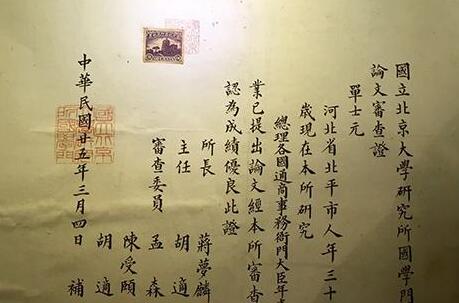 國立北京大學研究所國學門
論文審查證
單士元
河北省北平市人年三十
歲現在本所研究
總理各國通商事務衙門大臣年
業已提出論文經本所審查
認為成績優良此證
所長 蔣夢麟
主任 胡適
審查委員 孟森
陳受頤
胡適
中華民國廿五年三月四日 補